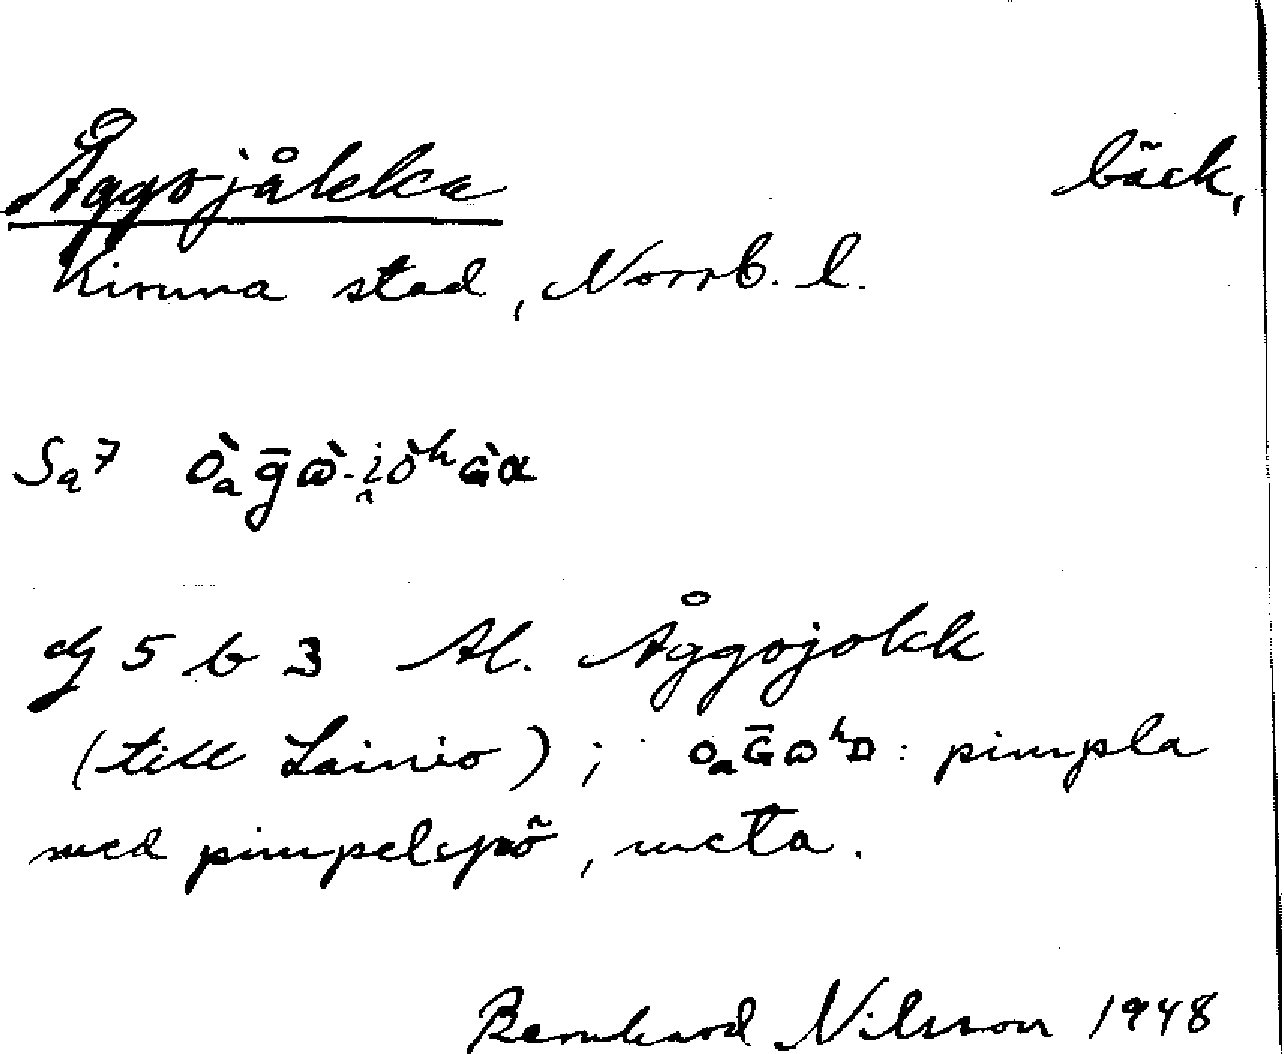 Åggojåkka bäck,
Kiruna stad, Norrb. l.
Sa 7 òₐḡɷ̀-i̯òʰɢ̀ɑ
dj 5 b 3 Al. Åggojokk
(till Lainio); oₐɢ̄ɷʰᴅ: pimpla
med pimpelspö, meta.
Bernhard Nilsson 1948